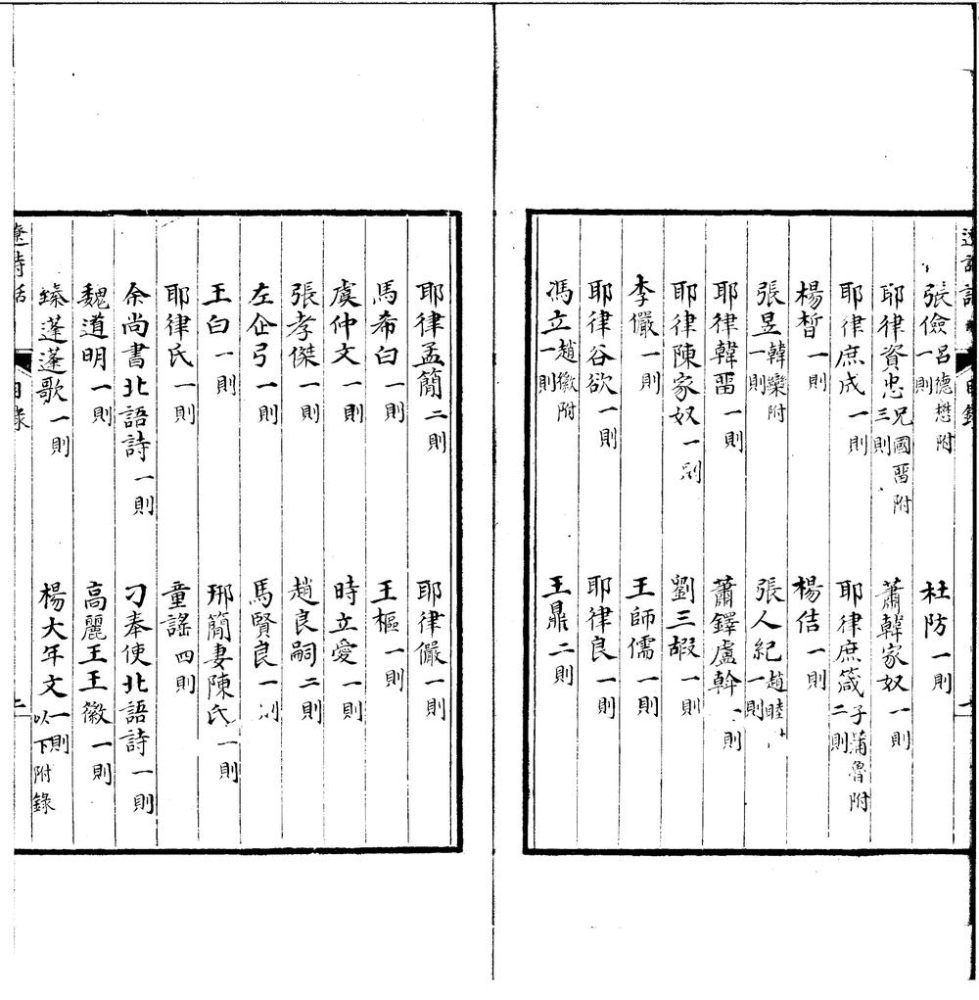 張儉 呂德懋附 一則 杜防 一則
耶律資忠 兄國畱附 三則 蕭韓家奴 一則
耶律庶成 一則 耶律庶箴 子蒲魯附 二則
楊晳 一則 楊佶 一則
張昱 韓欒附 一則 張人紀 趙睦 一則
耶律韓畱 一則 蕭鐸盧幹 一則
耶律陳家奴 一則 劉三嘏 一則
李儼 一則 王師儒 一則
耶律谷欲 一則 耶律良 一則
馮立 趙徽附 一則 王鼎 二則
耶律孟簡 二則 耶律儼 一則
馬希白 一則 王樞 一則
虞仲文 一則 時立愛 一則
張孝傑 一則 趙良嗣 二則
左企弓 一則 馬賢良 一則
王白 一則 邢簡妻陳氏 一則
耶律氏 一則 童謠 四則
余尚書北語詩 一則 刁奉使北語詩 一則
魏道明 一則 高麗王王徽 一則
臻蓬蓬歌 一則 楊大年文 一則 以下附錄
遼詩話 目錄